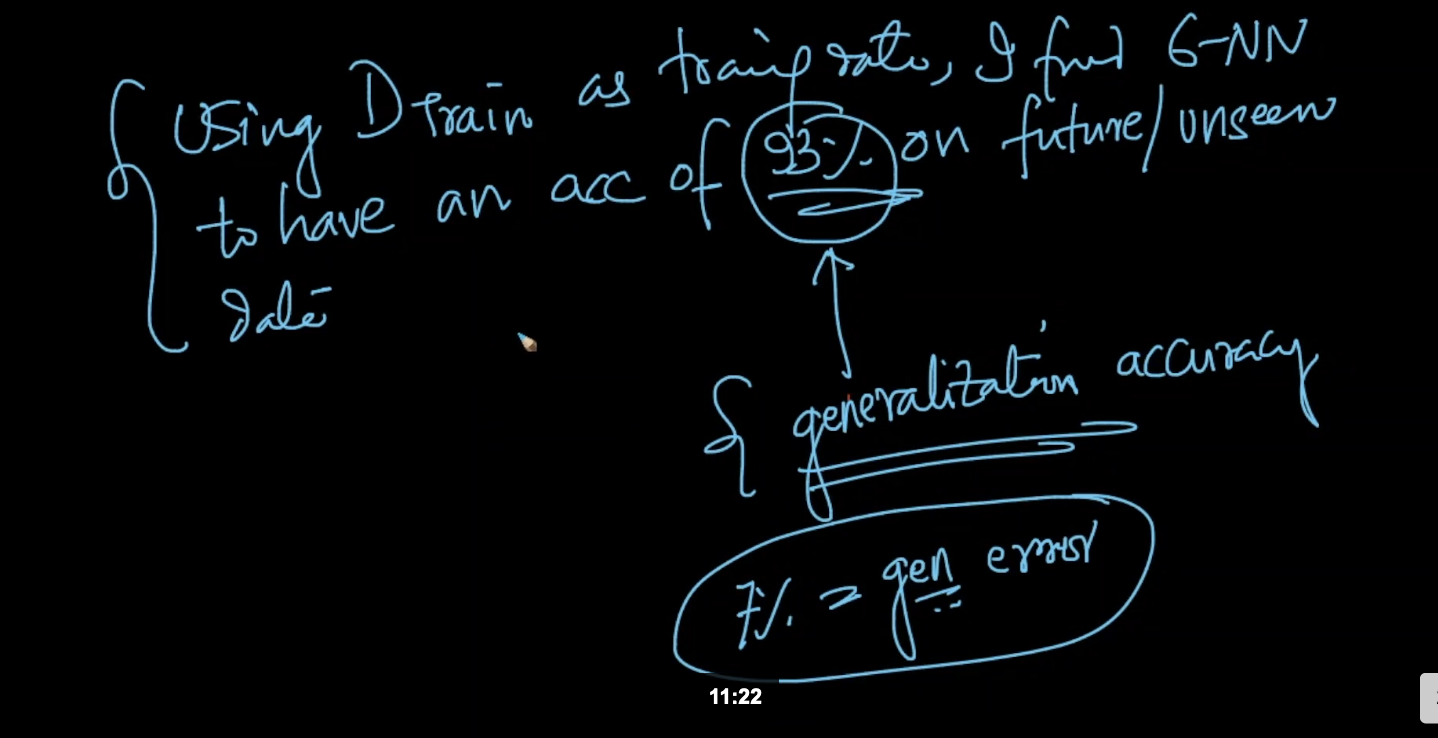 Using D Train as traing data, I find 6-NN
to have an acc of 93% on future/unseen
data
{ generalization accuracy
7% = gen error
11:22